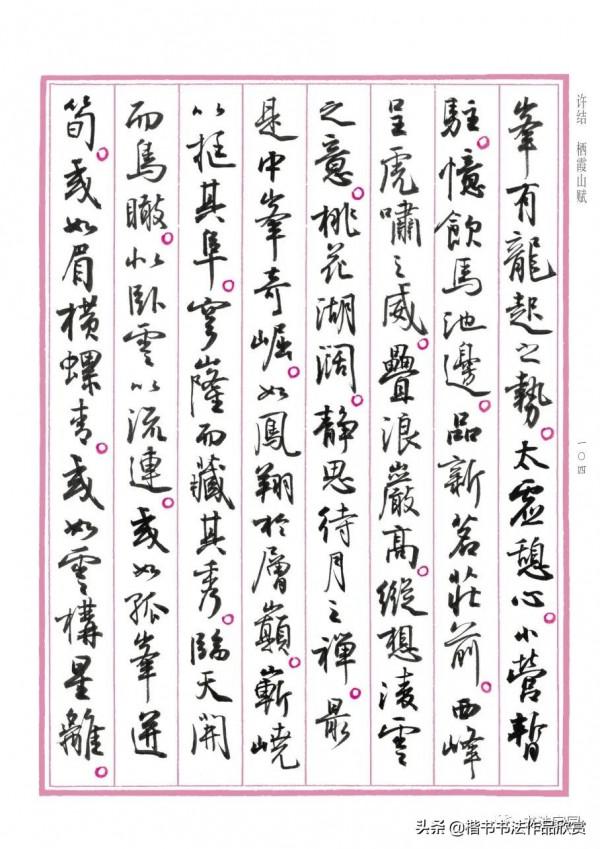 许结 栖霞山赋
一〇四
峯有龍起之勢。太虛憩心。小營暫
駐。憶飲馬池邊。品新茗莊前。西峰
呈虎嘯之威。疊浪巖高。縱想淩雲
之意。桃花湖闊。静思待月之禪。最
是中峯奇崛。如鳳翔於層巔。嶄嶢
以挺其阜。穹嶐而藏其秀。臨天開
而鳥瞰。比卧雲以流連。或如孤峯迸
筍。或如眉横螺青。或如雲構星離。
头条 @楷书书法作品欣赏